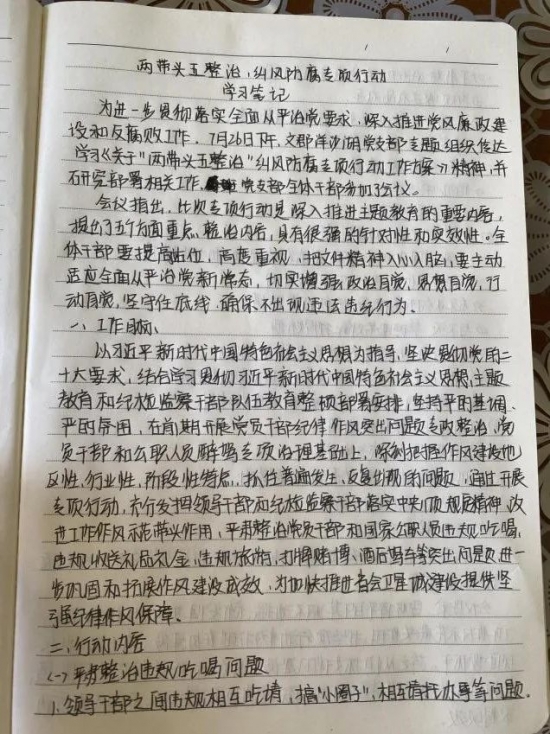 两带头五整治,纠风防腐专项行动
学习笔记
为进一步贯彻落实全面从严治党要求,深入推进党风廉政建
设和反腐败工作,7月26日下午,文郡洋沙湖党支部专题组织传达
学习《关于"两带头五整治"纠风防腐专项行动工作方案》精神,并
研究部署相关工作,党支部全体干部参加了会议。
会议指出,此次专项行动是深入推进主题教育的重要内容,
提出了五个方面重点整治内容,具有很强的针对性和实效性。全
体干部要提高站位,高度重视,把文件精神入心入脑,要主动
适应全面从严治党新常态,切实增强政治自觉,思想自觉,行
动自觉,坚守住底线,确保不出现违法违纪行为。
一、工作目标
以习近平新时代中国特色社会主义思想为指导,坚决贯彻党的二
十大要求,结合学习贯彻习近平新时代中国特色社会主义思想主题
教育和纪检监察干部队伍教育整顿部署安排,坚持严的基调、
严的氛围,在前期开展党员干部纪律作风突出问题专政整治,党
员干部和公职人员醉驾专项治理基础上,深刻把握作风建设地
区性,行业性,阶段性特点,抓住普遍发生,反复出现的问题,通过开展
专项行动,充分发挥领导干部和纪检监察干部落实中央八项规定精神,改
进工作作风示范带头作用,严肃整治党员干部和国家公职人员违规吃喝,
违规收送礼品礼金,违规旅游,打牌赌博,酒后驾车等突出问题,进一
步巩固和拓展作风建设成效,为加快推进省会卫星城建设提供坚
强纪律作风保障。
二、行动内容
(一)严肃整治违规吃喝问题
1、领导干部之间违规相互吃请,搞"小圈子",相互请托办事等问题.